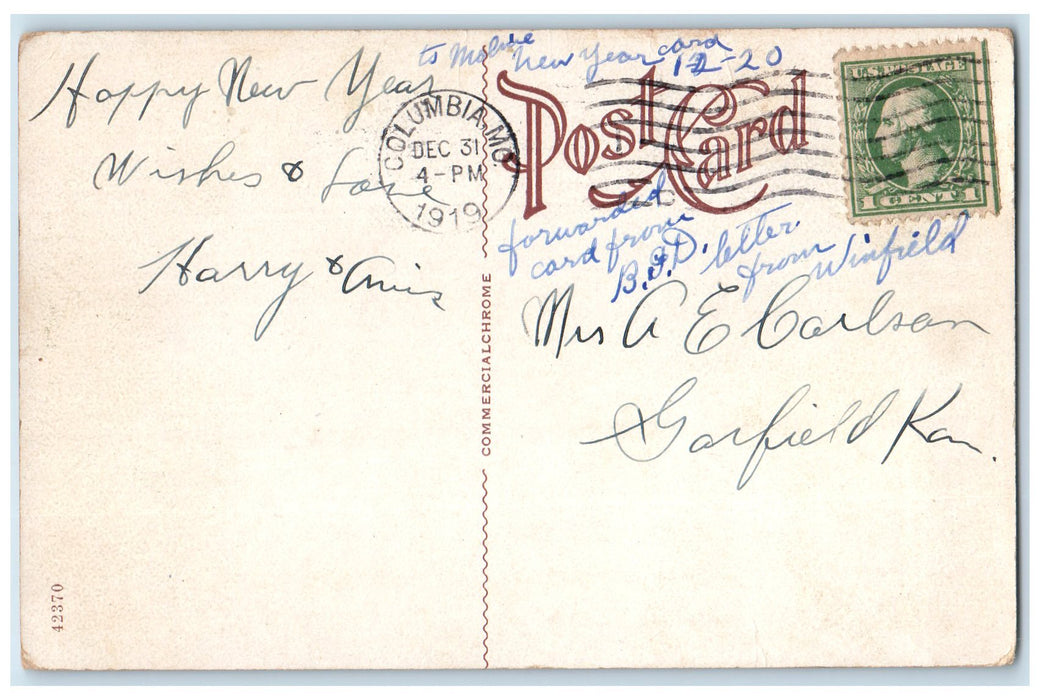 Happy New Year
Wishes & Love
Harry & Amis
to Moline New Year card
12-20
COLUMBIA, MO.
DEC 31
4-PM
1919
Post Card
U.S. POSTAGE
1 CENT 1
forwarded
card from
B.J.D. letter
from Winfield
Mrs A E Carlson
Garfield Kan.
COMMERCIALCHROME
42370